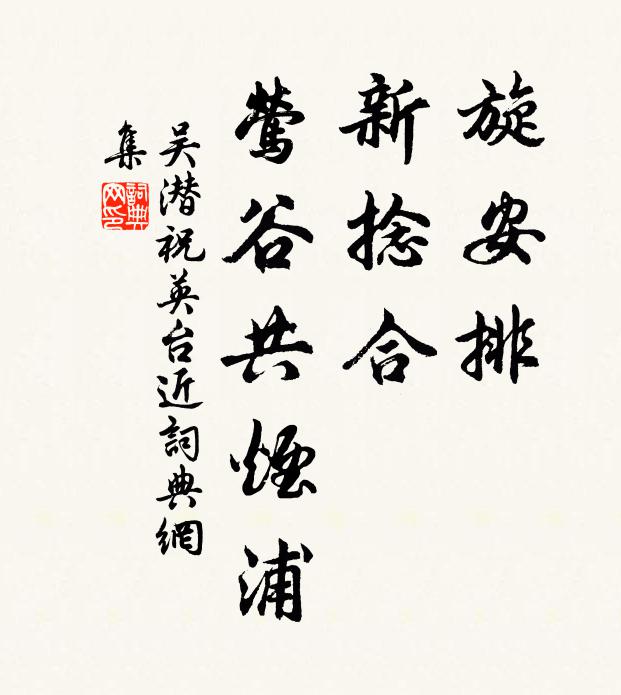 旋安排
新捻合
莺谷共煙浦
吴潜祝英台近詞典網
集
詞典
网印